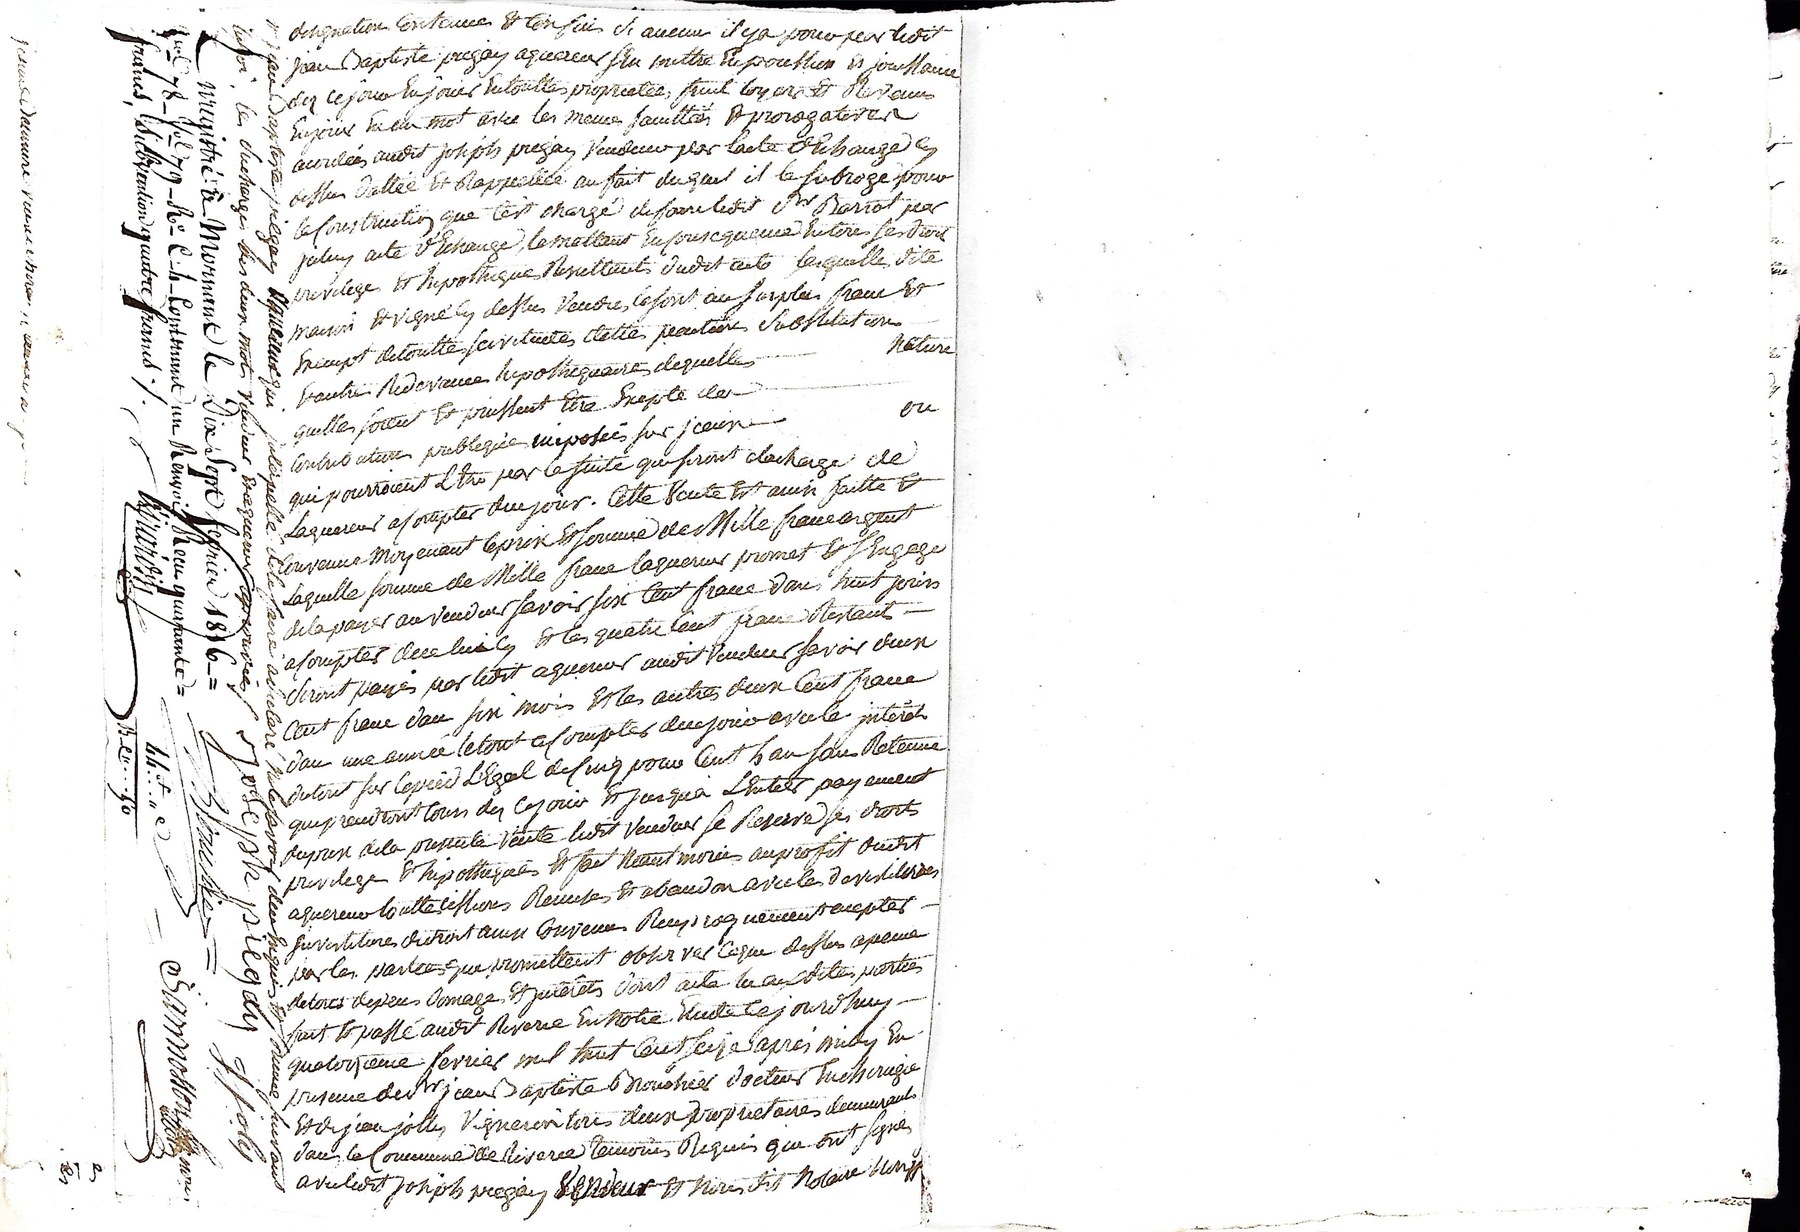 designation Contenues & Confins si aucun il ya pour par ledit
jean Baptiste piegay aquereur s'en mettre En possession Et jouissance
dez ce jour En jouir En touttes proprietées, fruit loyers Et Revenus
En jouir En un mot avec les meme facultés Et prerogatives
accordées audit joseph piegay Vendeur par l'acte d'Echange Cy
dessus dattée Et Rappellée au fait duquel il le subroge pour
la Construction que s'est chargé de faire ledit Sr Barrot par
acte d'Echange, le mettant En consequence En tous ses droit
privilege Et hipotheque Resultants dudit acte lesquelles dite
maison Et vigne Cy dessus Vendues le sont au surplus franc Et
Exempt de toutte servitudes dettes pentions substitutions
Et autres Redevances hipothequaires dequelles nature
quelles soient Et puissent Etre Excepté des
Contributions publiques imposées sur jcelux ou
qui pourroient L'Etre par la suite qui seront a la charge de
Laquereur a Compter du jour. Cette Vente Est ainsi faitte Et
Convenue Moyenant le prix Et somme de Mille franc argent
Laquelle somme de Mille franc laquereur promet Et s'Engage
de la payer au vendeur savoir six Cent franc dans huit jours
a Compter de celui Cy Et les quatre Cent franc Restant
seront payés par ledit aquereur audit Vendeur savoir deux
Cent franc dans six mois Et les autres deux Cent franc
dans une année le tout a Compter du jour avec les jnterets
du tout sur le pied L'Egal de Cinq pour Cent h an sans Retenue
qui prendront Cours dez ce jour Et jusqu'a L'Entier payement
du prix de la presente Vente ledit Vendeur se Reserve ses droits
privilege Et hipotheques Et fait Neantmoins au profit dudit
aquereur toutte cessions Remises Et abandon avec les devestitures
jnvestitures de droit ainsi Convenu Reciproquement accepter
par les parties que promettent observer ce que dessus a peine
de tous depens domage Et jnterets dont acte lu auxdites parties
fait Et passé audit Riverie En notre Etude Ce jourdhuy
quatorzieme fevrier mil huit Cent seize apres midy En
presence de Sr jean Baptiste Brouchier docteur En chirugie
Et de jean jolly Vigneron tous deux proprietaires demeurants
dans la Commune de Riverie temoins Requis qui ont signé
avec ledit joseph piegay Vendeur Et Nous dit Notaire Non ledit
jean Baptiste piegay aquereur qui jnterpellé de le faire a declaré ne le savoir de ce Enquis Et sommé suivant
la loi. les surcharges des deux mots vendeur Et aquereur aprouvées
Joseph piegay J Joly
Brouchier
Samosson nore
Enregistré à Mornant le Dix Sept fevrier 1816 =
Vol 78 – fo 179 – Ro C. 1. Contenant un Renvoi, Reçu quarante =
francs, subvention quatre francs ./.
44.f " c